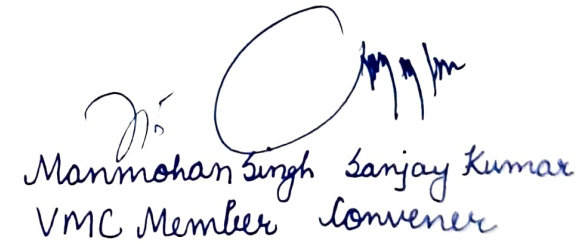 Manmohan Singh Sanjay Kumar
VMC Member Convener